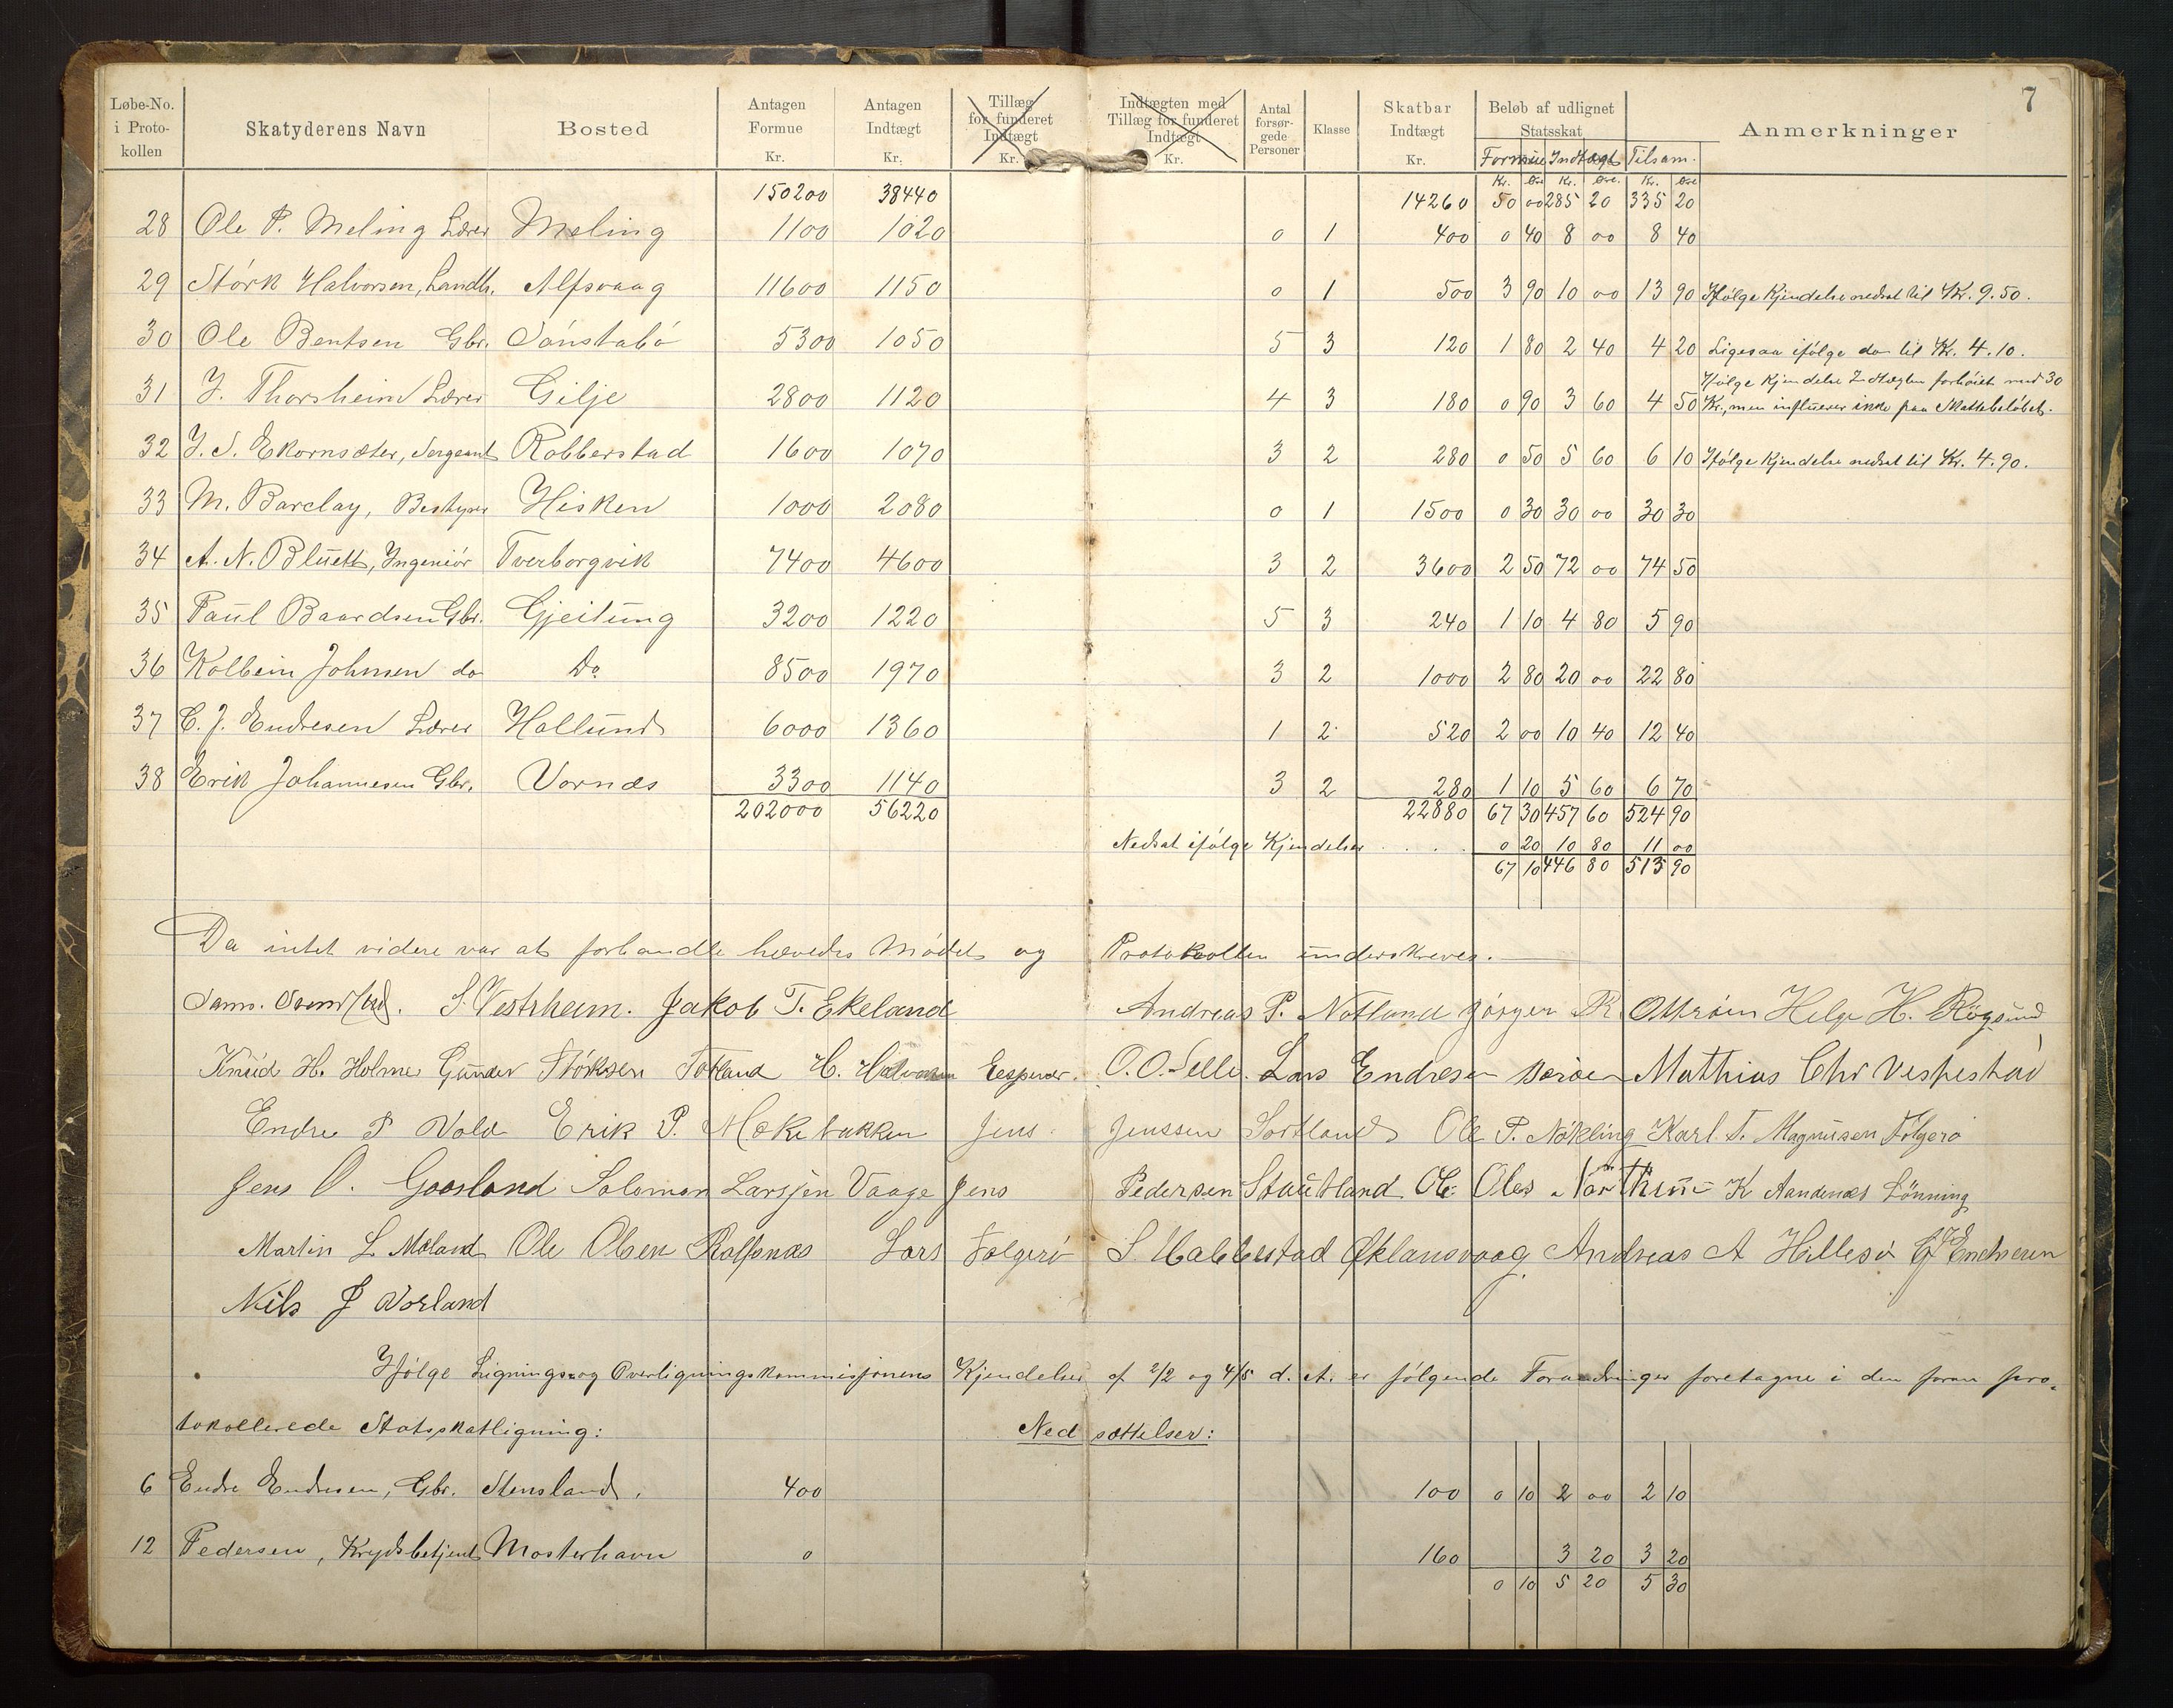 7
Løbe-No. i Protokollen | Skatyderens Navn | Bosted | Antagen Formue Kr. | Antagen Indtægt Kr. | Tillæg for funderet Indtægt Kr. | Indtægten med Tillæg for funderet Indtægt Kr. | Antal forsørgede Personer | Klasse | Skatbar Indtægt Kr. | Beløb af udlignet Statsskat | Anmerkninger
Formue Indtægt Tilsam.
Kr. Øre Kr. Øre. Kr. Øre
150200 38440 14260 50 00 285 20 335 20
28 Ole P. Meling Lærer Meling 1100 1020 0 1 400 0 40 8 00 8 40
29 Störk Halvorsen, Landh. Alfsvaag 11600 1150 0 1 500 3 90 10 00 13 90 Ifölge Kjendelse nedsat til Kr. 9.50.
30 Ole Bentsen Gbr. Sönstabö 5300 1050 5 3 120 1 80 2 40 4 20 Ligesaa ifölge do til Kr. 4.10.
31 J. Thorsheim Lærer Gilje 2800 1120 4 3 180 0 90 3 60 4 50 Ifölge Kjendelse Indtægten forhöiet med 30
Kr., men influerer ikke paa Skattebelöbet.
32 J. S. Ekornsæter, Sergeant Robberstad 1600 1070 3 2 280 0 50 5 60 6 10 Ifölge Kjendelse nedsat til Kr. 4.90.
33 M. Barclay, Bestyrer Hisken 1000 2080 0 1 1500 0 30 30 00 30 30
34 A. N. Bluett, Ingeniör Tverborgvik 7400 4600 3 2 3600 2 50 72 00 74 50
35 Paul Baardsen Gbr. Gjeitung 3200 1220 5 3 240 1 10 4 80 5 90
36 Kolbein Johnsen do Do 8500 1970 3 2 1000 2 80 20 00 22 80
37 C. J. Endresen Lærer Hallund 6000 1360 1 2 520 2 00 10 40 12 40
38 Erik Johannesen Gbr. Vornæs 3300 1140 3 2 280 1 10 5 60 6 70
202000 56220 22880 67 30 457 60 524 90
Nedsat ifölge Kjendelser . . . . 0 20 10 80 11 00
67 10 446 80 513 90
Da intet videre var at forhandle hævedes Mödet og Protokollen underskreves.
S. Vestrheim. Jakob T. Ekeland Andreas P. Notland Jörgen R. Helge H. Rögsund
Knud H. Holme Gunder Störksen Totland H. Halvorsen Eespevær. O. O. Selle. Lars Endresen Mathias Chr Vespestad
Endre P Vold Erik P. Mökebakken Jens Jenssen Sortland Ole P. Nökling Karl T. Magnusen Folgerö
Jens O. Goosland Salomon Larssen Vaage Jens Pedersen Stautland K Aandenæs Lönning
Martin L Moland Ole Olsen Rolfsnæs Lars Folgerö S. Habbestad Öklansvaag Andreas A Hillesö CJ Endresen
Nils J Vorland
Ifölge Lignings og Overligningskommissionens Kjendelser af 2/2 og 4/5 d. A. er fölgende Forandringer foretagne i den foran pro-
tokollerede Statsskatligning: Nedsættelser:
6 Endre Endresen, Gbr. Stensland. 400 100 0 10 2 00 2 10
12 Pedersen, Krydsbetjent Mosterhavn 0 160 3 20 3 20
0 10 5 20 5 30